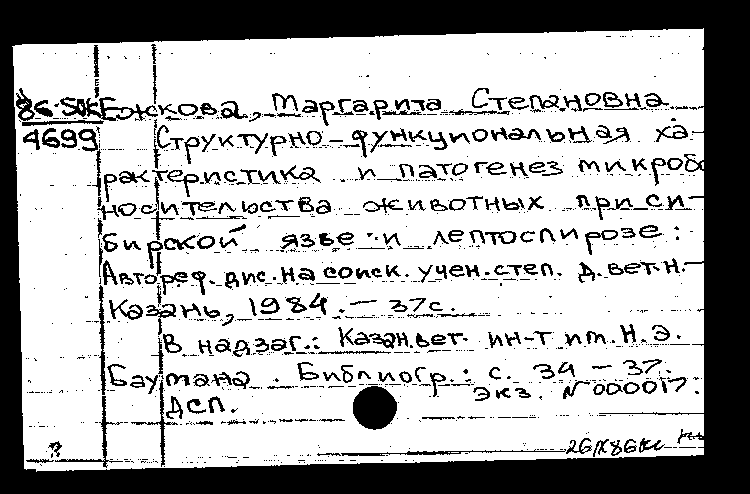 86-5ДК Ежкова, Маргарита Степановна
4699 Структурно-функциональная ха-
рактеристика и патогенез микробо
носительства животных при си-
бирской язве и лептоспирозе:
Автореф. дис. на соиск. учен. степ. д. вет. н. -
Казань, 1984. - 37с.
В надзаг.: Казан. вет. ин-т им. Н.Э.
Баумана. Библиогр.: с. 34 - 37.
ДСП. Экз. N 000017.